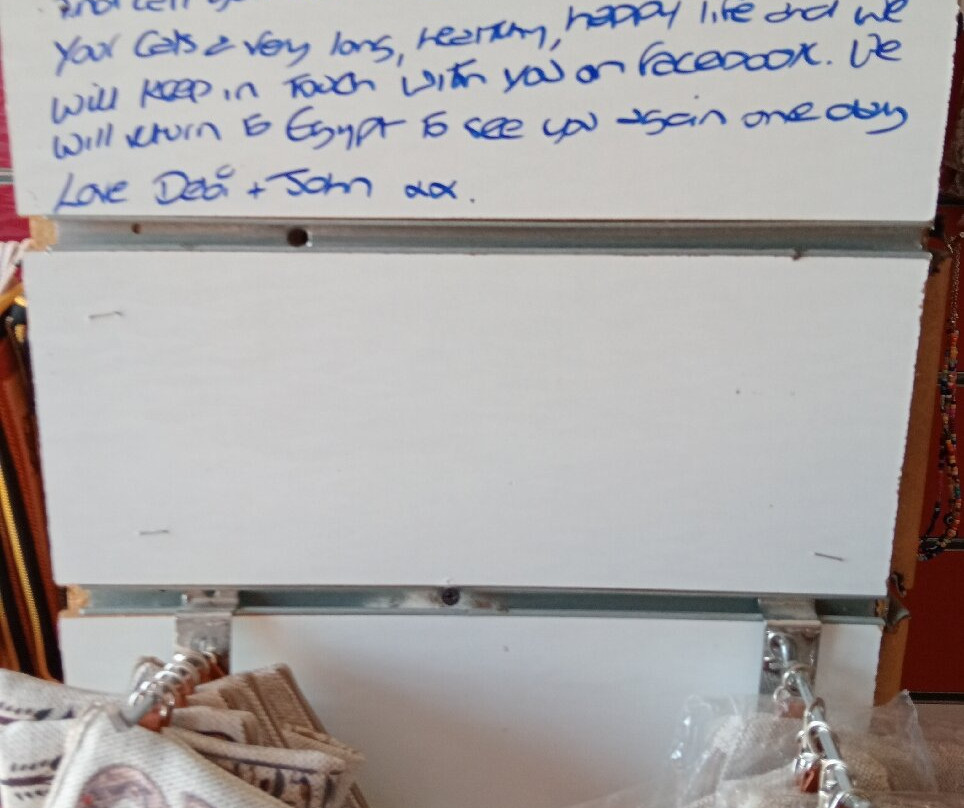 your cats a very long, healthy, happy life and we
will keep in touch with you on facebook. We
will return to Egypt to see you again one day
Love Debi + John xx.